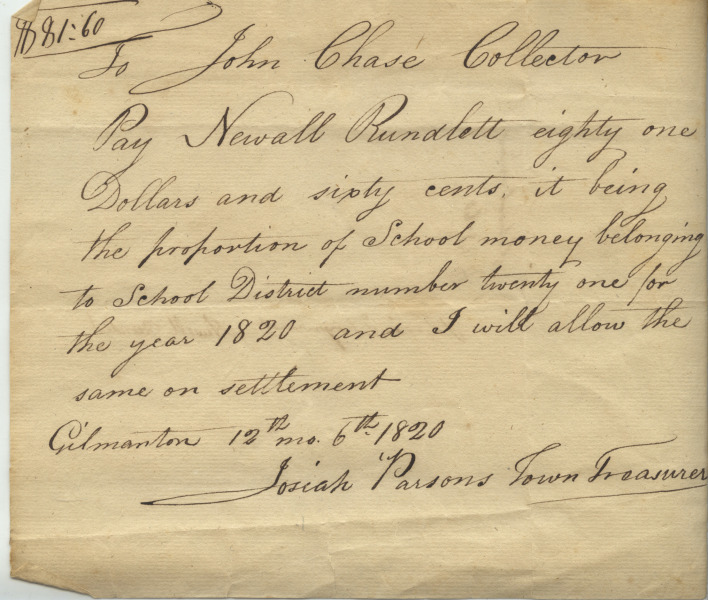 $81:60
To John Chase Collector
Pay Newall Rundlett eighty one
Dollars and sixty cents, it being
the proportion of School money belonging
to School District number twenty one for
the year 1820 and I will allow the
same on settlement
Gilmanton 12th mo. 6th 1820
Josiah Parsons Town Treasurer